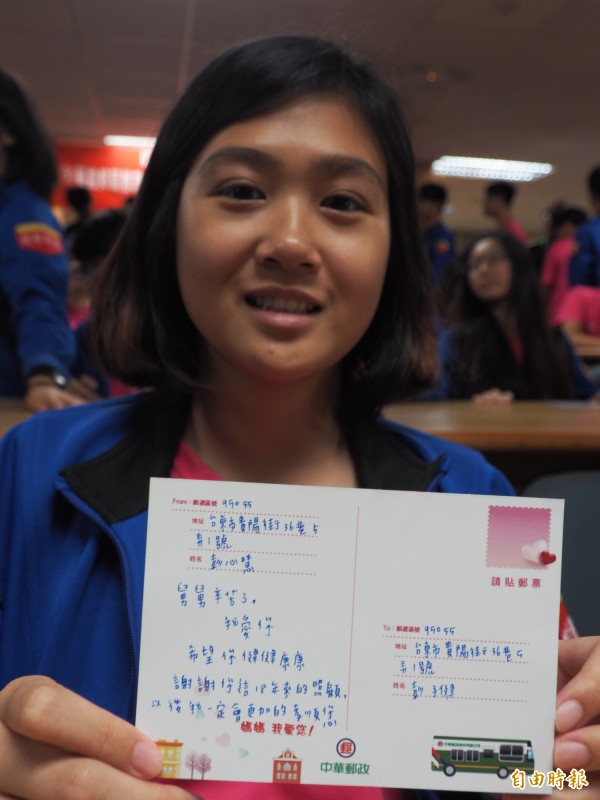 From：郵遞區號 95055
地址 台東市貴陽街36巷5
弄1號
姓名 彭心慧
舅舅辛苦了。
我愛你
希望你健健康康
謝謝你這18年來的照顧，
以後我一定會更加的孝順您
媽媽 我愛您！
中華郵政
請貼郵票
To：郵遞區號 95055
地址 台東市貴陽街36巷5
弄1號
姓名 彭
自由時報